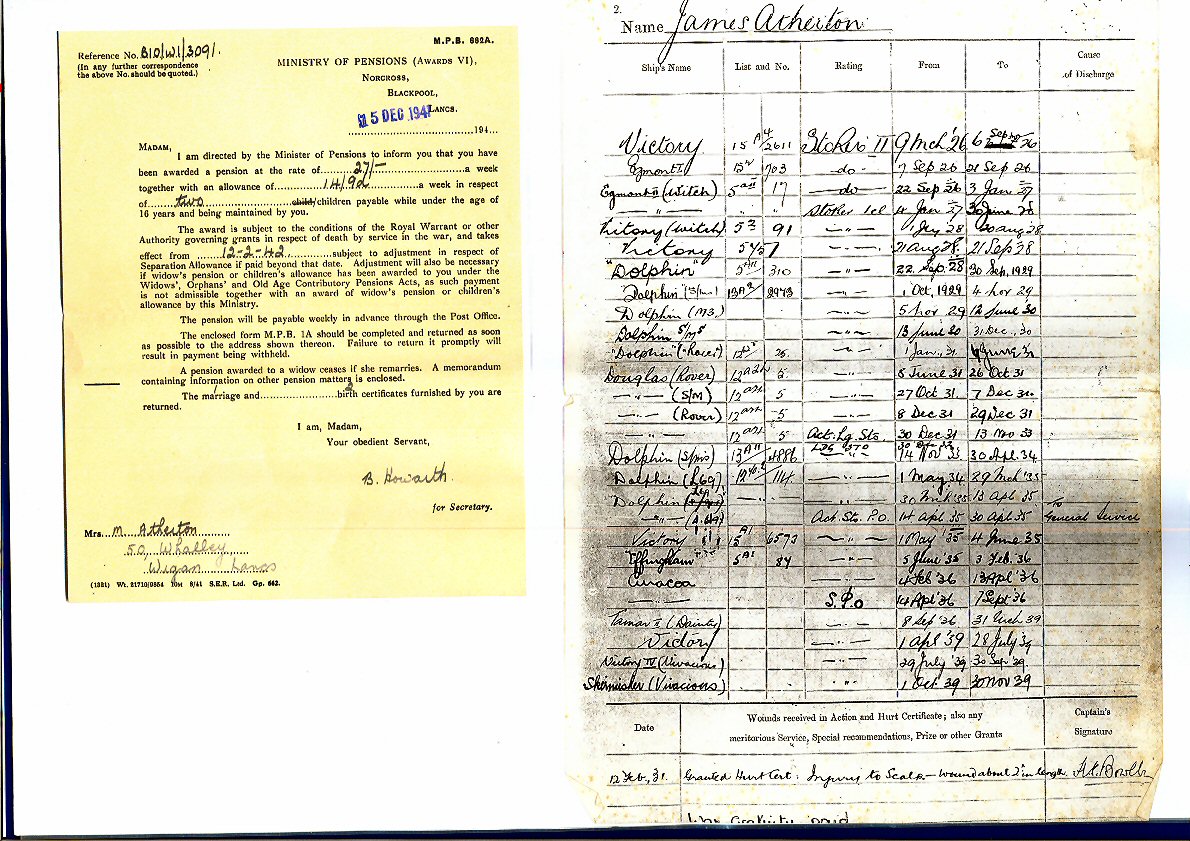 M.P.B. 682A.
Reference No. B10/W1/3091.
(In any further correspondence
the above No. should be quoted.)
MINISTRY OF PENSIONS (AWARDS VI),
NORCROSS,
BLACKPOOL,
LANCS.
15 DEC 194
194
MADAM,
I am directed by the Minister of Pensions to inform you that you have
been awarded a pension at the rate of 27/- a week
together with an allowance of 14/9d a week in respect
of two child/children payable while under the age of
16 years and being maintained by you.
The award is subject to the conditions of the Royal Warrant or other
Authority governing grants in respect of death by service in the war, and takes
effect from 12-2-42 subject to adjustment in respect of
Separation Allowance if paid beyond that date. Adjustment will also be necessary
if widow's pension or children's allowance has been awarded to you under the
Widows', Orphans' and Old Age Contributory Pensions Acts, as such payment
is not admissible together with an award of widow's pension or children's
allowance by this Ministry.
The pension will be payable weekly in advance through the Post Office.
The enclosed form M.P.B. 1A should be completed and returned as soon
as possible to the address shown thereon. Failure to return it promptly will
result in payment being withheld.
A pension awarded to a widow ceases if she remarries. A memorandum
containing information on other pension matters is enclosed.
The marriage and 2 birth certificates furnished by you are
returned.
I am, Madam,
Your obedient Servant,
B. Howarth.
for Secretary.
Mrs. M. Atherton
50 Whalley
Wigan Lancs
(1321) Wt. 21710/9554 10M 8/41 S.E.R. Ltd. Gp. 642.
2.
Name James Atherton
Ship's Name List and No. Rating From To Cause of Discharge
Victory 15 2611 Stoker II 9 Mch '26 6 Sep 26
Egmont II 703 do 7 Sep 26 21 Sep 26
Egmont II (Witch) 17 do 22 Sep 26 3 Jan 27
" " Stoker 1cl 4 Jan 27 30 June 28
(Witch) 91 " 1 July 28 20 aug 28
Victory " 21 aug 28 21 Sep 28
"Dolphin" 310 " 22 Sep. 28 30 Sep, 1929
Dolphin 8973 " 1 Oct, 1929 4 Nov 29
Dolphin " 5 Nov 29 12 June 30
Dolphin S/MS " 13 June 30 31 Dec. 30
"Dolphin" 1 Jan, 31
Douglas (Rover) 5 " 5 June 31 26 Oct 31
" (S/M) 5 " 27 Oct 31. 7 Dec 31.
" (Rover) 5 " 8 Dec 31 29 Dec 31
" 5 Act. Lg. Sto. 30 Dec 31 13 Nov 33
Dolphin 4886 14 Nov 33 30 Apl. 34
Dolphin (L69) 114 " 1 May 34 29 Mch '35
Dolphin " 30 Mch '35 13 Apl 35
" Act. Sto. P.O 14 Apl 35 30 Apl 35 To General Service
Victory 6573 " 1 May '35 4 June 35
Effingham 84 " 5 June '35 3 Feb. 36
Curacoa 4 Feb '36 13 Apl '36
" S.P.O 14 Apl '36 7 Sept '36
Tamar II (Dainty) " 8 Sep '36 31 Mch 39
Victory " 1 Apl '39 28 July 39
Victory IV (Vivacious) " 29 July '39 30 Sep 39
Skirmisher (Vivacious) " 1 Oct 39 30 Nov 39
Date
Wounds received in Action and Hurt Certificate; also any
meritorious Service, Special recommendations, Prize or other Grants
Captain's
Signature
12 Feb, 31. Granted Hurt Cert: Injury to Scalp - wound about 2" in length.
War Gratuity paid